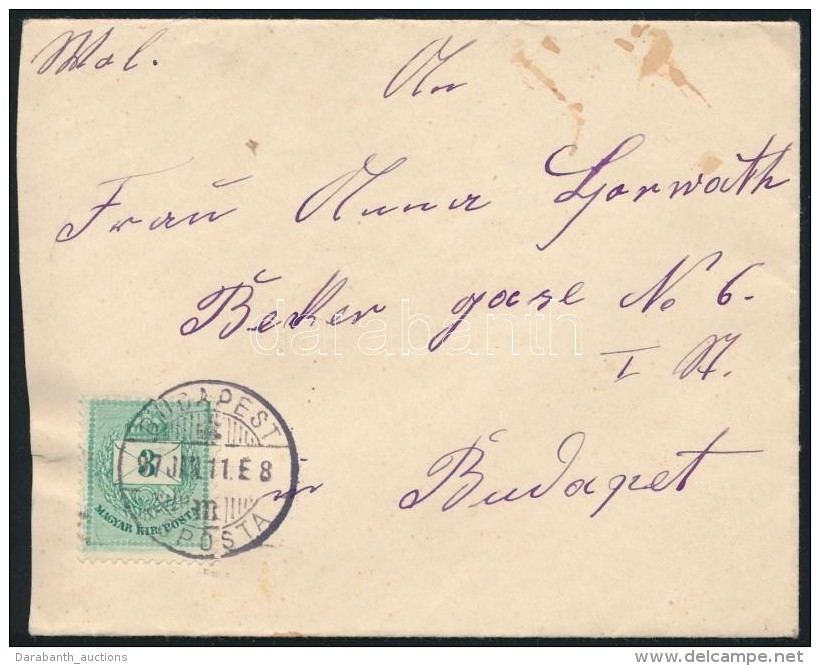 Wol.
An
Frau Anna Horwáth
Beker gase No 6.
I St.
in Budapet
BUDAPEST
97 JUN. 11. E 8
POSTA
3
MAGYAR KIR. POSTA
darabanth
Darabanth_auctions
delcampe.net